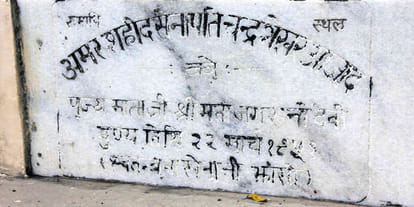 समाधि स्थल
अमर शहीद सेनापति चन्द्र शेखर आजाद
की
पूज्य माता जी श्री मती जगरानी देवी
पुण्य तिथि २२ मार्च १९५१
झांसी)